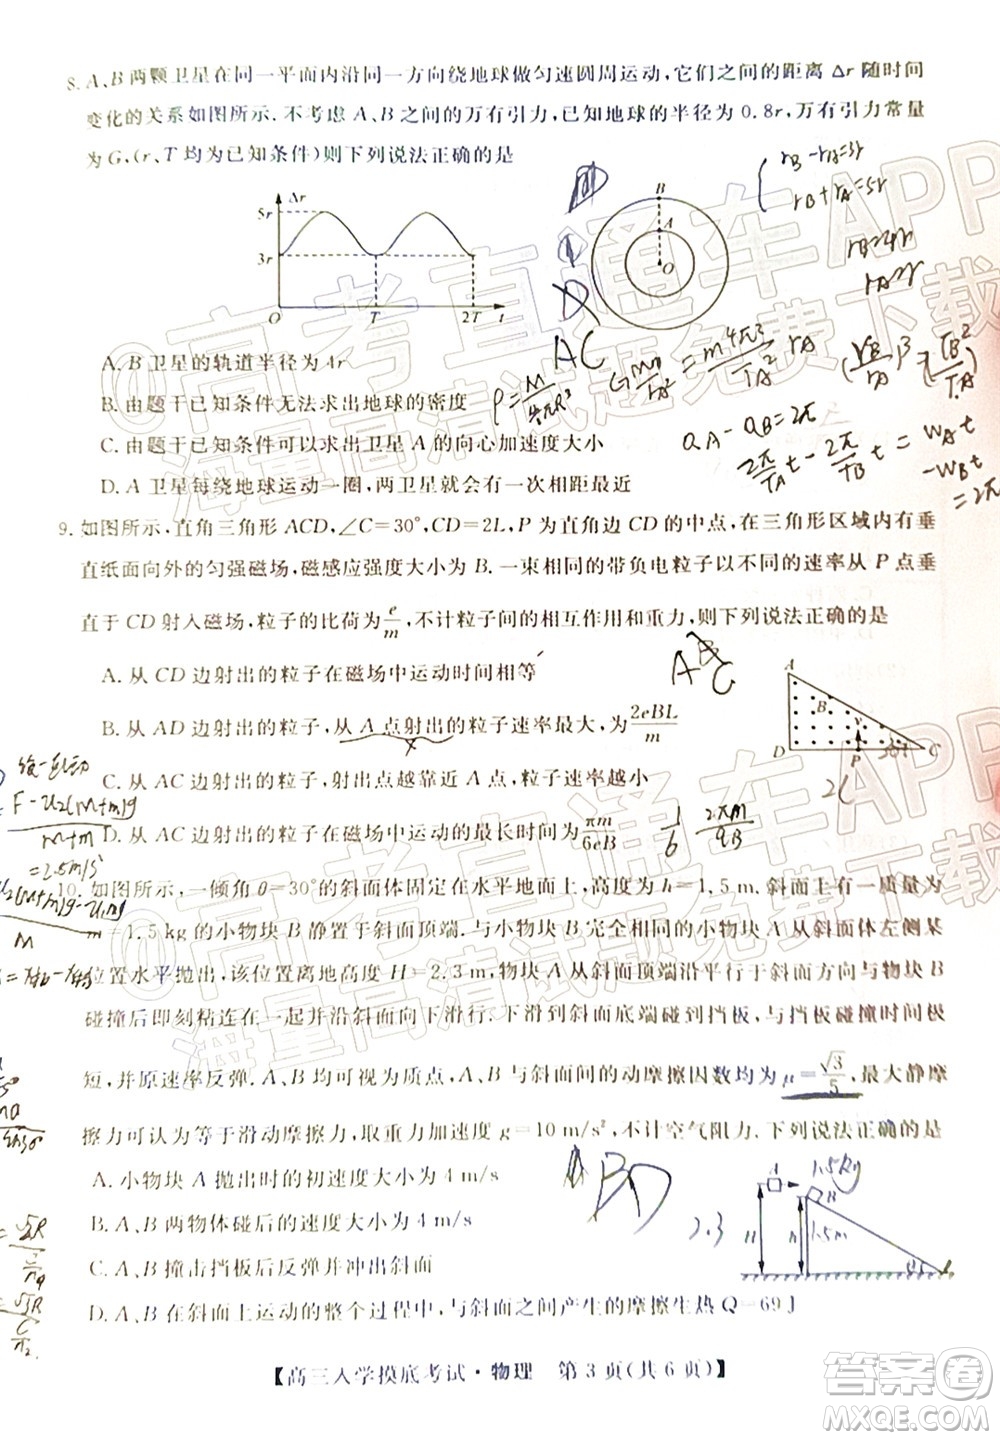 8. A、B 两颗卫星在同一平面内沿同一方向绕地球做匀速圆周运动,它们之间的距离 Δr 随时间
变化的关系如图所示. 不考虑 A、B 之间的万有引力,已知地球的半径为 0.8r,万有引力常量
为 G,(r、T 均为已知条件)则下列说法正确的是
rB - rA = 3r
rB + rA = 5r
rB = 4r
rA = r
Δr
5r
3r
O
T
2T
t
B
A
O
A. B 卫星的轨道半径为 4r
B. 由题干已知条件无法求出地球的密度
C. 由题干已知条件可以求出卫星 A 的向心加速度大小
D. A 卫星每绕地球运动一圈,两卫星就会有一次相距最近
AC
9. 如图所示,直角三角形 ACD,∠C=30°,CD=2L,P 为直角边 CD 的中点,在三角形区域内有垂
直纸面向外的匀强磁场,磁感应强度大小为 B. 一束不同的带负电粒子以不同的速率从 P 点垂
直于 CD 射入磁场,粒子的比荷为 e/m,不计粒子间的相互作用和重力,则下列说法正确的是
A. 从 CD 边射出的粒子在磁场中运动时间相等
B. 从 AD 边射出的粒子,从 A 点射出的粒子速率最大,为 2eBL/m
C. 从 AC 边射出的粒子,射出点越靠近 A 点,粒子速率越小
D. 从 AC 边射出的粒子在磁场中运动的最长时间为 πm/6eB
1/6 2πm/qB
A
B
v
D
P
30°
C
2L
10. 如图所示,一倾角 θ=30°的斜面体固定在水平地面上,高度为 h=1.5 m. 一质量为
=1.5 kg 的小物块 B 静置于斜面顶端. 与 B 完全相同的小物块 A 从斜面体左侧某
位置水平抛出,该位置离地高度 H=2.3 m,物块 A 从斜面顶端沿平行于斜面方向与物块 B
碰撞后即刻粘连在一起并沿斜面向下滑行. 下滑到斜面底端碰到挡板,与挡板碰撞时间极
短,并原速率反弹. A、B 均可视为质点,它们与斜面间的动摩擦因数均为 μ=√3/5,最大静摩
擦力可认为等于滑动摩擦力,取重力加速度 g=10 m/s²,不计空气阻力. 下列说法正确的是
A. 小物块 A 抛出时的初速度大小为 4 m/s
B. A、B 两物体碰后的速度大小为 4 m/s
C. A、B 撞击挡板后反弹并冲出斜面
D. A、B 在斜面上运动的整个过程中,与斜面之间产生的摩擦生热 Q=69 J
BD
1.5kg
2.3
H
h
1.5m
B
【高三入学摸底考试·物理 第 3 页(共 6 页)】
@高考直通车APP
海量高清试题免费下载
@高考直通车APP
海量高清试题免费下载
答案圈
MXQE.COM